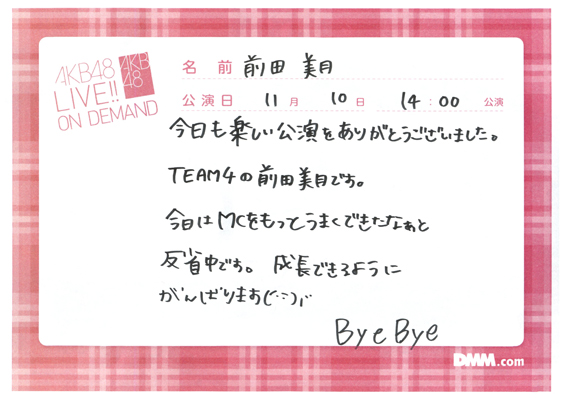 AKB48
LIVE!!
ON DEMAND
AKB
48
名前 前田 美月
公演日 11月 10日 14:00 公演
今日も楽しい公演をありがとうございました。
TEAM4の前田美月です。
今日はMCをもっとうまくできたなぁと
反省中です。成長できるように
がんばります(ˊ··ˋ)۶
Bye Bye
DMM.com